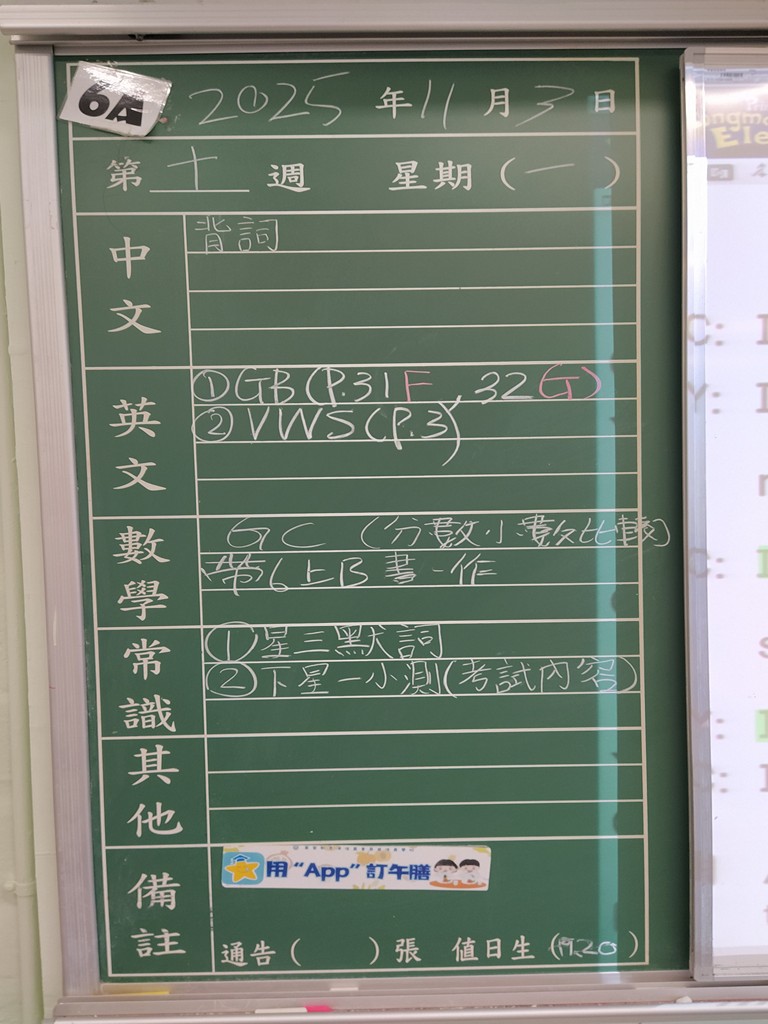 6A
2025 年 11 月 3 日
第 十 週 星期（一）
中文
背詞
英文
①GB(P.31F, 32G)
②VWS(P.3)
數學
GC (分數小數比較)
帶6上B書、作
常識
①星三默詞
②下星一小測(考試內容)
其他
備註
用“App”訂午膳
通告（ ）張 值日生（19.20）
C: I
Y: I
C: I